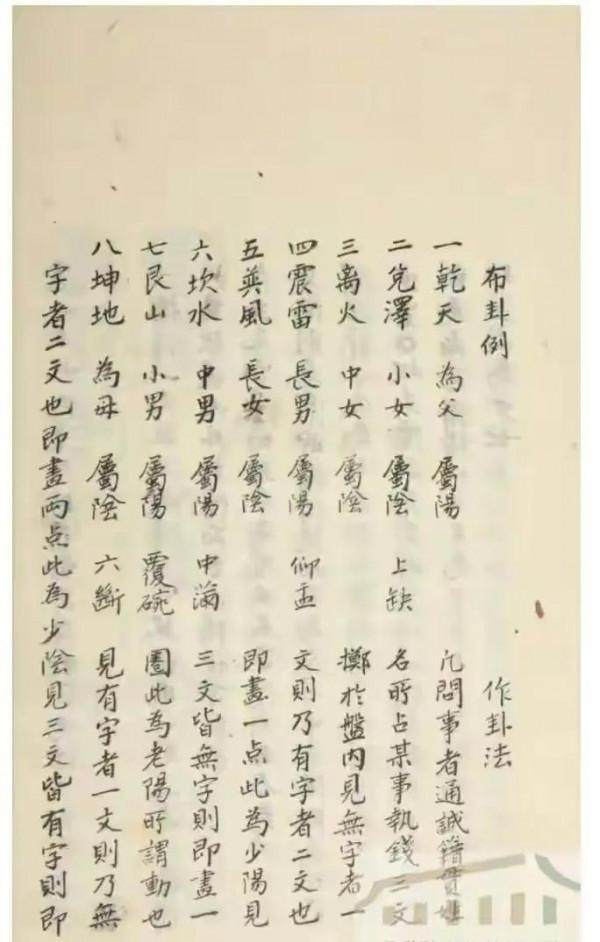 布卦例 作卦法
一乾天 為父 屬陽 凡問事者通誠籍貫姓
二兌澤 小女 屬陰 上缺 名所占某事執錢三文
三离火 中女 屬陰 擲於盤内見無字者一
四震雷 長男 屬陽 仰盂 文則乃有字者二文也
五巽風 長女 屬陰 即畫一点此為少陽見
六坎水 中男 屬陽 中滿 三文皆無字則即畫一
七艮山 小男 屬陽 覆碗 圈此為老陽所謂動也
八坤地 為母 屬陰 六斷 見有字者一文則乃無
字者二文也即畫兩点此為少陰見三文皆有字則即